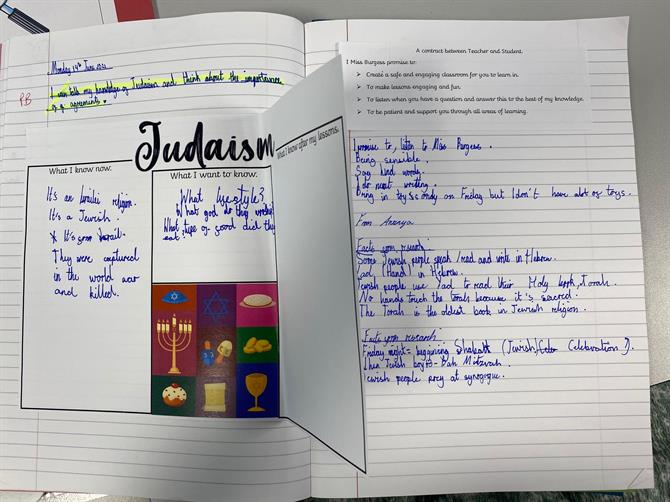 Monday 14th June 2021
I can tell my knowledge of Judaism and think about the importance
of agreements.
P.B
Judaism
What I know now.
It's an Israilei religion.
It's a Jewish.
They were captured
in the world war
and killed.
What I want to know.
What lifestyle?
What god do they worship
What type of good did they
eat.
What I know after my lessons.
A contract between Teacher and Student.
I Miss Burgess promise to:
➤ Create a safe and engaging classroom for you to learn in.
➤ To make lessons engaging and fun.
➤ To listen when you have a question and answer this to the best of my knowledge.
➤ To be patient and support you through all areas of learning.
I promise to, listen to Miss Burgess.
Being sensible.
Say kind words.
I do neat writing.
Bring in toys only on Friday but I don't have alot of toys.
From Ananya
Facts from research:
Some Jewish people speak/read and write in Hebrew.
God (Hand) in Hebrew.
Jewish people use Yad to read their Holy book, Torah.
No hands touch the torah because it's sacred.
The Torah is the oldest book in Jewish religion.
Facts from research:
Friday night= beginning Shabatt (Jewish Celebration).
Jewish boy 13- Bah Mitzvah.
Jewish people prey at synogogue.